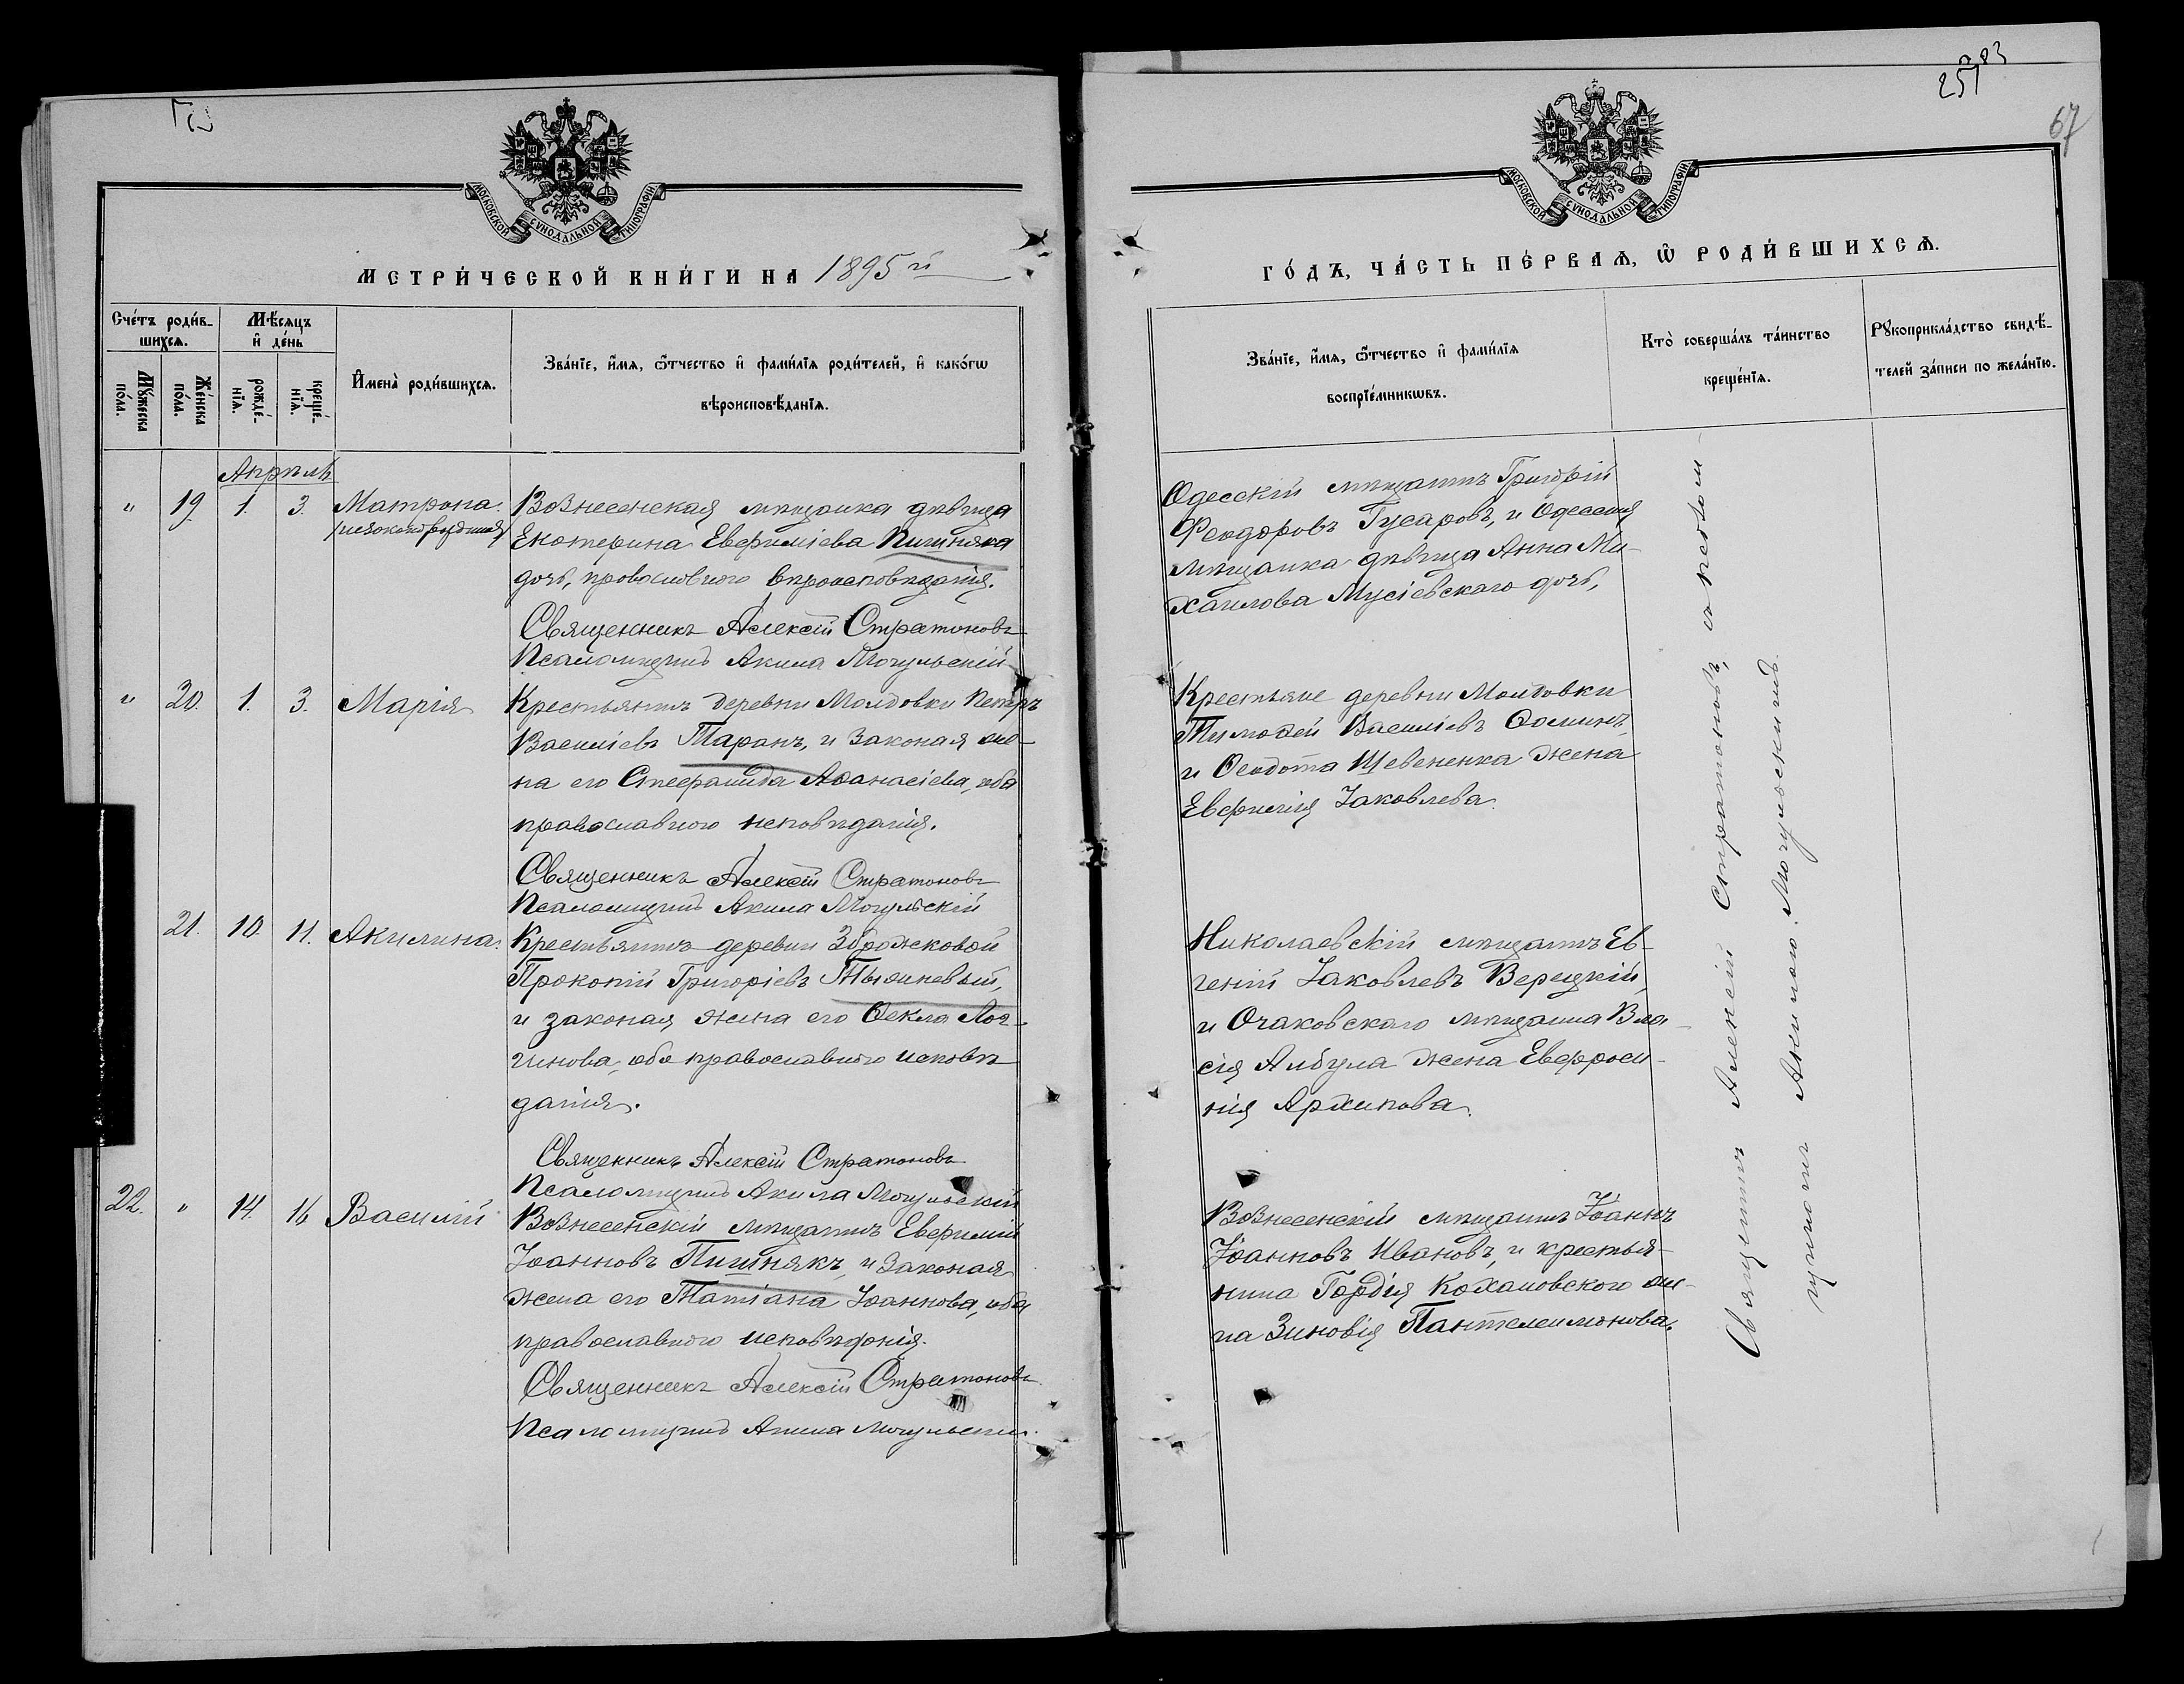 257 83
67
МОСКОВСКОЙ СѴНОДАЛЬНОЙ ТИПОГРАФІИ
МЕТРИ́ЧЕСКОЙ КНИ́ГИ НА 1895 й
Сче́тъ роди́в-
шихсѧ.
Мѣ́сѧцъ
и҆ де́нь
Мꙋ́жеска
по́ла.
Же́нска
по́ла.
рожде́-
нїѧ.
креще́-
нїѧ.
И҆мена̀ роди́вшихсѧ.
Зва́нїе, и҆́мѧ, ѻ҆́тчество и҆ фами́лїѧ роди́телей, и҆ како́гѡ
вѣроисповѣ́данїѧ.
Апрѣль
" 19. 1. 3. Матрона.
/незаконорожденная/
Вознесенская мѣщанка дѣвица
Екатерина Евфиміева Пишняка
дочь, православного вѣроисповѣданія.
Священникъ Алексій Стратоновъ
Псаломщикъ Акила Могульскій
" 20. 1. 3. Марія
Крестьянинъ деревни Молдовки Петръ
Василіевъ Таранъ, и законая же-
на его Аѳанасіева, оба
православного исповѣданія.
Священникъ Алексій Стратоновъ
Псаломщикъ Акила Могульскій
21. 10. 11. Акилина.
Крестьянинъ деревни Зброжковой
Прокопій Григоріевъ
и законая жена его Ѳекла Лог-
гинова, оба православного исповѣ
данія.
Священникъ Алексій Стратоновъ
Псаломщикъ Акила Могульскій
22. " 14. 16 Василій
Вознесенскій мѣщанинъ Евфимій
Іоанновъ Пишнякъ, и законая
жена его Татіана Іоаннова, оба
православного исповѣданія.
Священникъ Алексій Стратоновъ
Псаломщикъ Акила Могульскій.
МОСКОВСКОЙ СѴНОДАЛЬНОЙ ТИПОГРАФІИ
ГО́ДЪ, ЧА́СТЬ ПЕ́РВАѦ, Ѡ҆ РОДИ́ВШИХСѦ.
Зва́нїе, и҆́мѧ, ѻ҆́тчество и҆ фами́лїѧ
воспрїе́мникѡвъ.
Кто̀ соверша́лъ та́инство
креще́нїѧ.
Рꙋкоприкла́дство свидѣ́-
телей за́писи по жела́нїю.
Одесскій мѣщанинъ Григорій
Феодоровъ Гусаровъ, и Одесская
мѣщанка дѣвица Анна Ми-
хаилова Мусіевскаго дочь,
Крестьяне деревни Молдовки
Тимоѳей Василіевъ Ѳоминъ,
и Ѳеодота Шевененка жена
Евфимія Іаковлева.
Николаевскій мѣщанинъ Ев-
геній Іаковлевъ Верецкій,
и Очаковскаго мѣщанина Вла-
сія Албула жена Евфроси-
нія Архипова.
Вознесенскій мѣщанинъ Іоаннъ
Іоанновъ Ивановъ, и крестья-
нина Гордія Кохановского же-
на Зиновія Пантелеимонова.
Священникъ Алексій Стратоновъ, съ псалом-
щикомъ Акилою Могульскимъ.